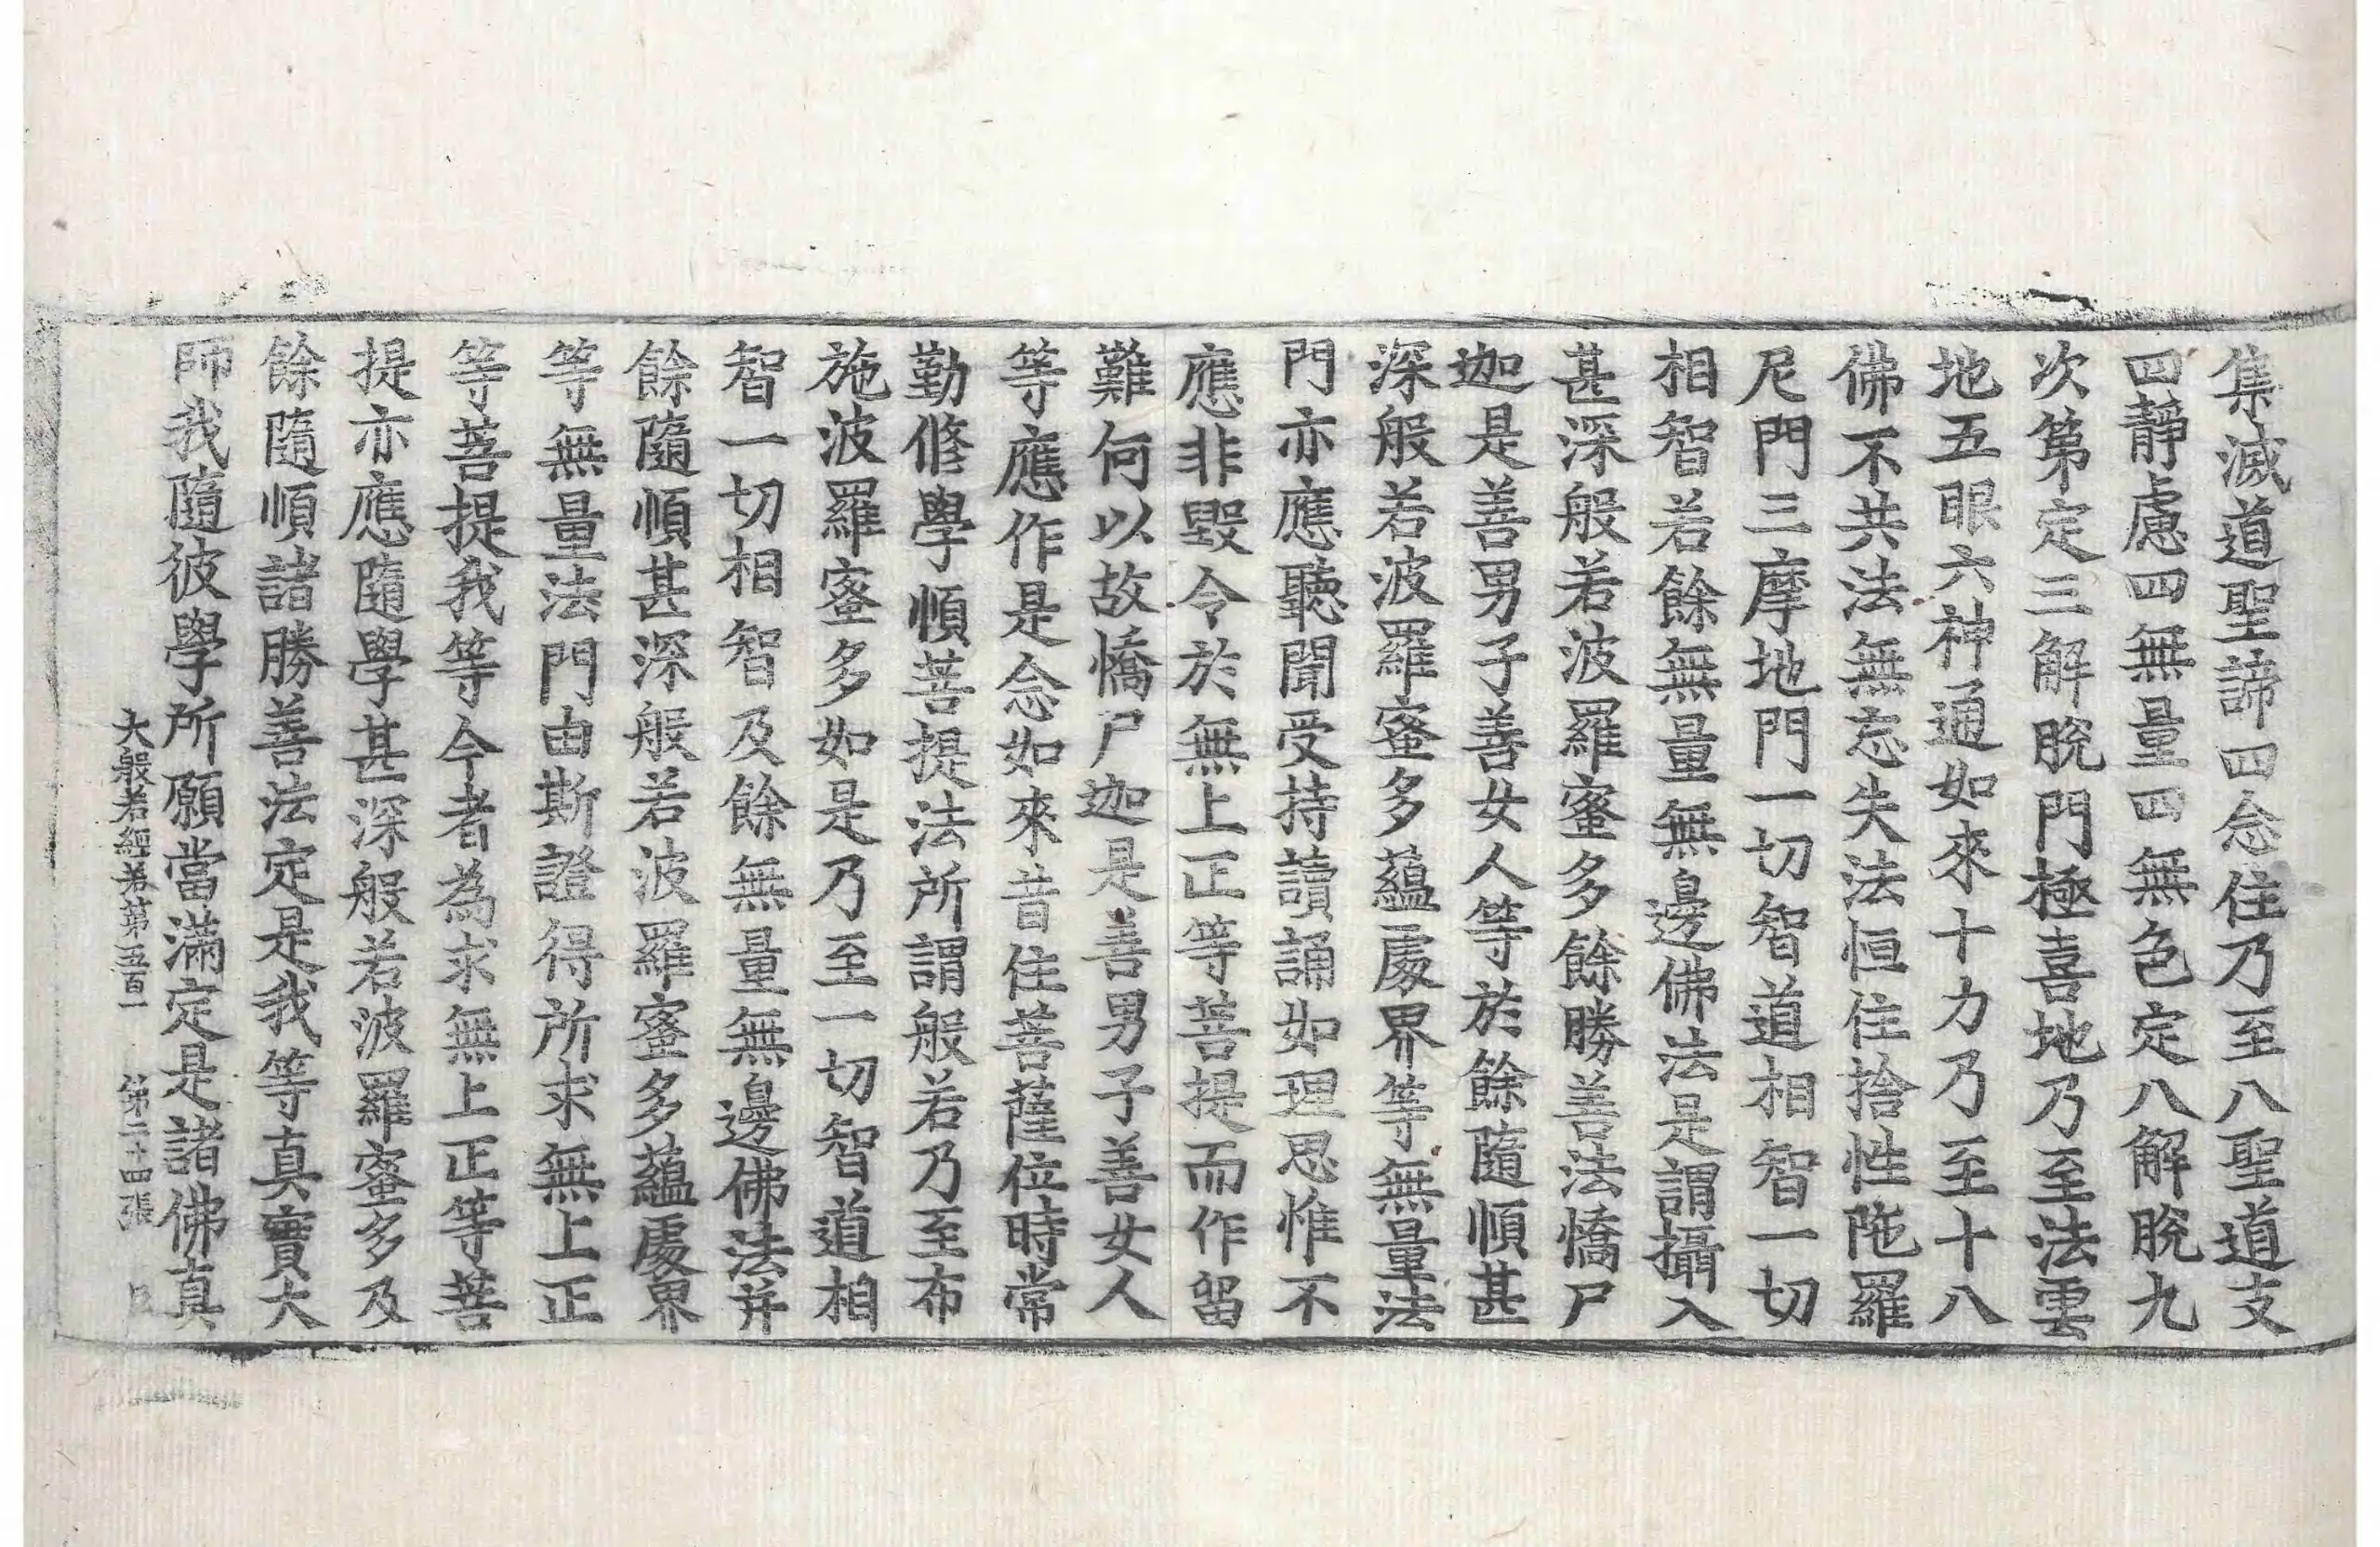 集滅道聖諦四念住乃至八聖道支
四靜慮四無量四無色定八解脫九
次第定三解脫門極喜地乃至法雲
地五眼六神通如來十力乃至十八
佛不共法無忘失法恒住捨性陁羅
尼門三摩地門一切智道相智一切
相智若餘無量無邊佛法是謂攝入
甚深般若波羅蜜多餘勝善法憍尸
迦是善男子善女人等於餘隨順甚
深般若波羅蜜多蘊處界等無量法
門亦應聽聞受持讀誦如理思惟不
應非毀令於無上正等菩提而作留
難何以故憍尸迦是善男子善女人
等應作是念如來昔住菩薩位時常
勤修學順菩提法所謂般若乃至布
施波羅蜜多如是乃至一切智道相
智一切相智及餘無量無邊佛法并
餘隨順甚深般若波羅蜜多蘊處界
等無量法門由斯證得所求無上正
等菩提我等今者為求無上正等菩
提亦應隨學甚深般若波羅蜜多及
餘隨順諸勝善法定是我等真實大
師我隨彼學所願當滿定是諸佛真
大般若經卷第五百一 第二十四張